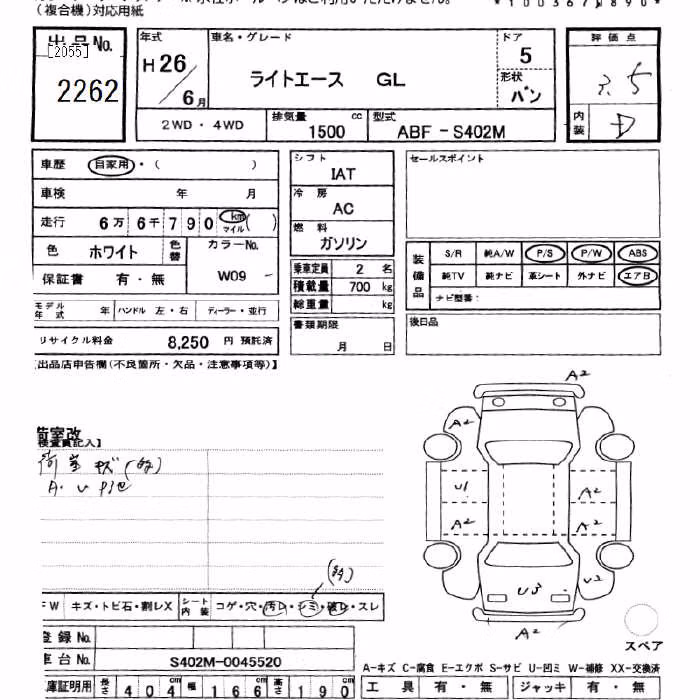 (複合機)対応用紙
*100367
890*
出品No.
[2055]
2262
年式
H26
6月
車名・グレード
ライトエース GL
ドア
5
形状
バン
評価点
3.5
内装
D
2WD・4WD
排気量 cc
1500
型式
ABF-S402M
車歴 自家用・( )
車検 年 月
走行 6万6千790 km マイル ( )
色 ホワイト 色替 カラーNo.
W09
保証書 有・無
モデル年式 年 ハンドル 左・右 ディーラー・並行
リサイクル料金 8,250 円 預託済
シフト
IAT
冷房
AC
燃料
ガソリン
乗車定員 2 名
積載量 700 kg
総重量 kg
書類期限
月 日
セールスポイント
装備品
S/R 純A/W P/S P/W ABS
純TV 純ナビ 革シート 外ナビ エアB
ナビ型番:
後日品
出品店申告欄(不良箇所・欠品・注意事項等)】
荷室改
検査員記入】
荷室キズ(多)
A・U
A2
U1
A2
A2
A2
U3
U2
A2
(多)
FW キズ・トビ石・割レX シート内装 コゲ・穴・汚レ・シミ・破レ・スレ
登録No.
車台No. S402M-0045520
庫証明用 長さ 404 cm 幅 166 cm 高さ 190 cm
スペア
A-キズ C-腐食 E-エクボ S-サビ U-凹ミ W-補修 XX-交換済
工具 有・無 ジャッキ 有・無